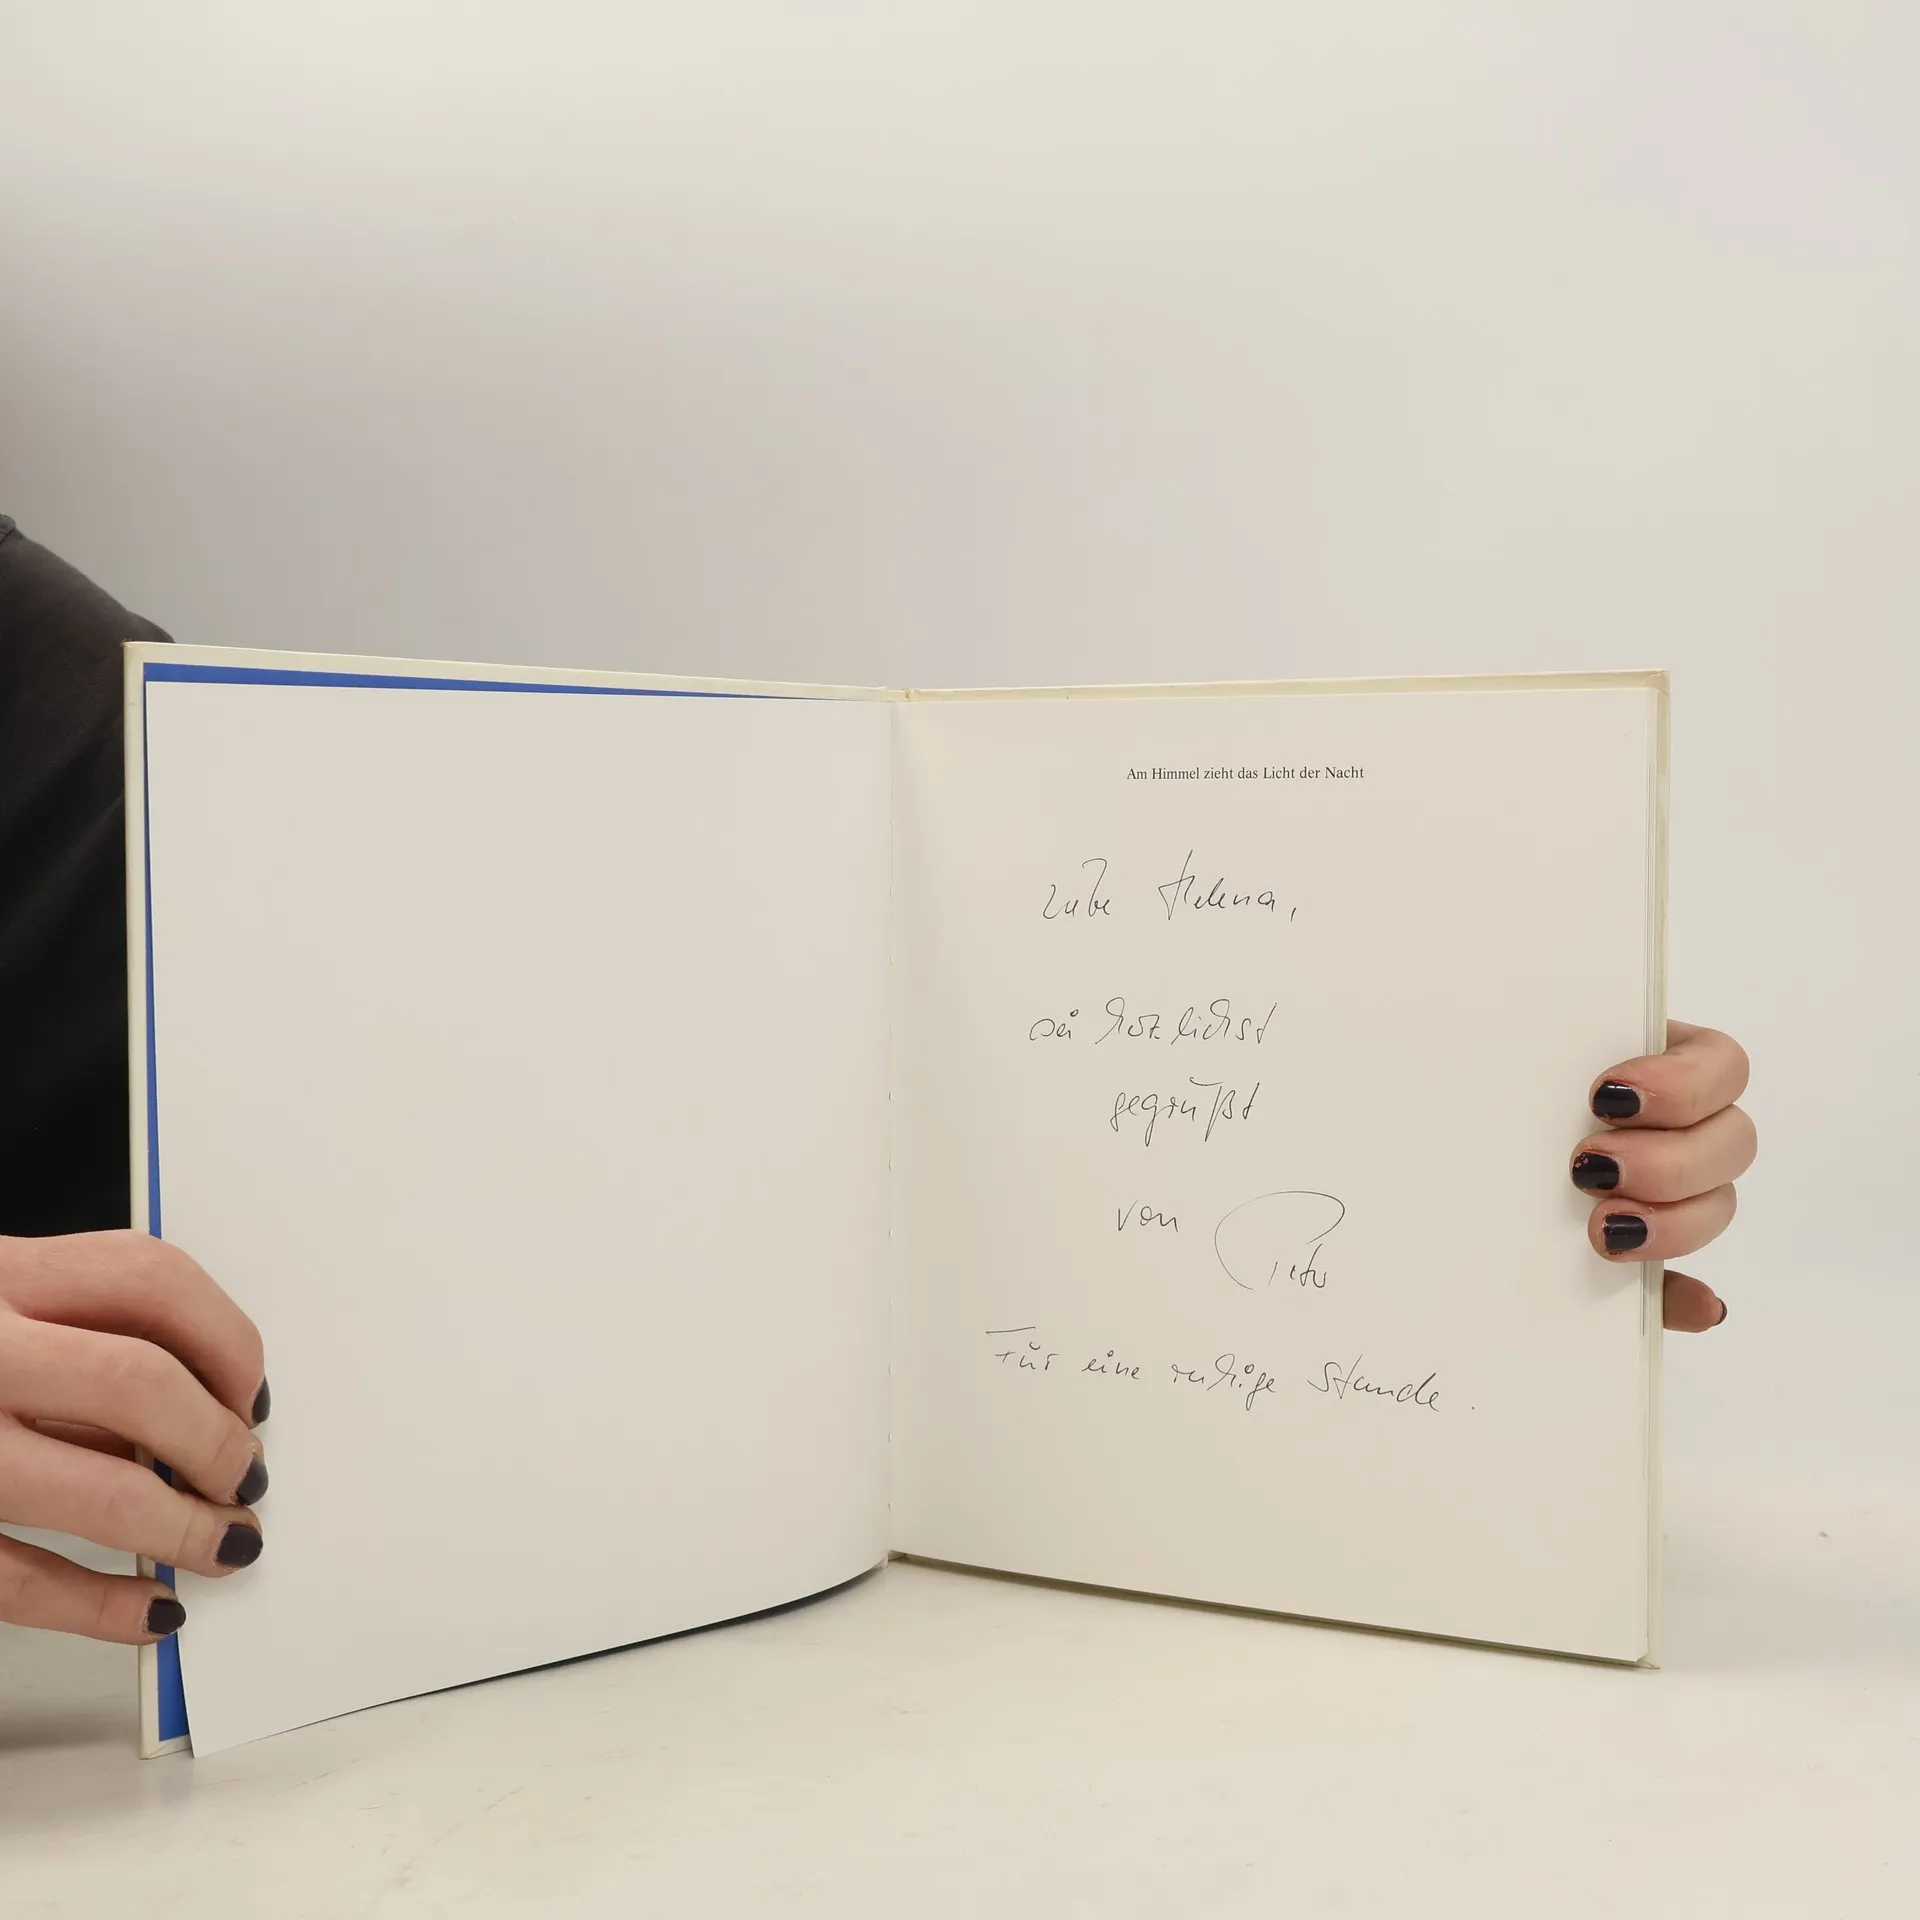 Am Himmel zieht das Licht der Nacht
Liebe Helena,
sei herzlichst
gegrüßt
von Peter
Für eine ruhige Stunde.